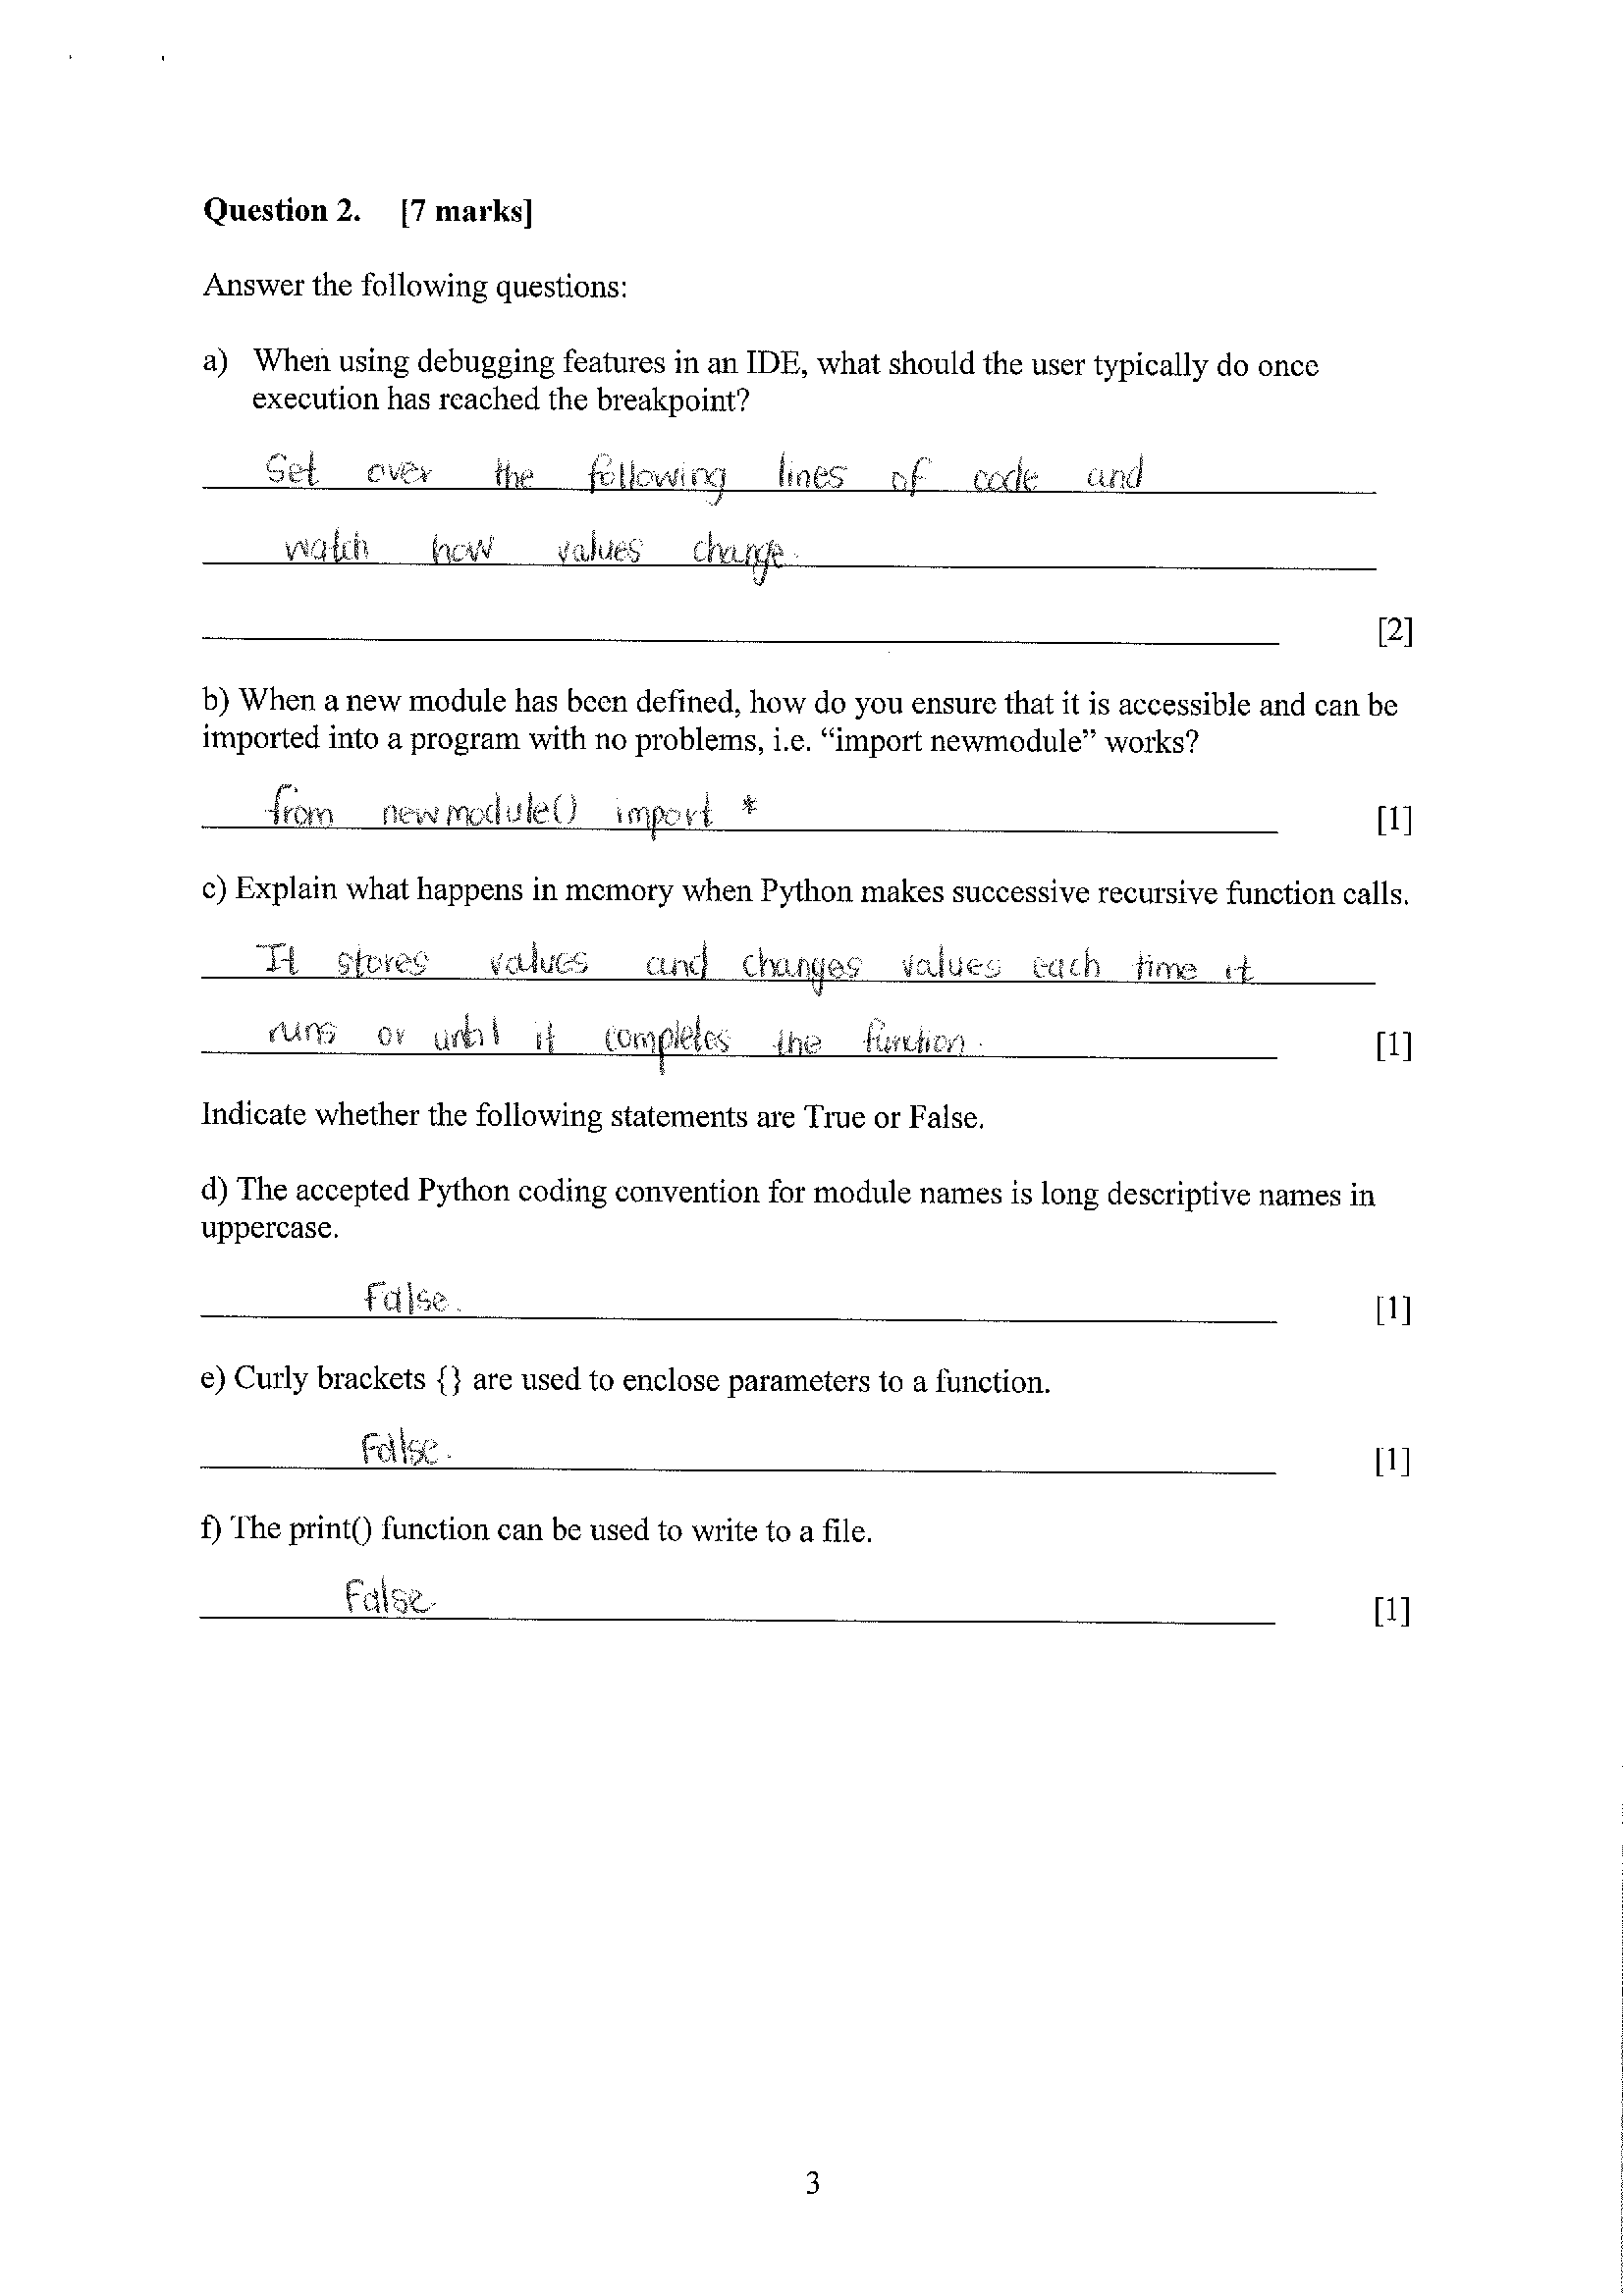 Question 2. [7 marks]
Answer the following questions:
a) When using debugging features in an IDE, what should the user typically do once
execution has reached the breakpoint?
Set over the following lines of code and
watch how values change.
[2]
b) When a new module has been defined, how do you ensure that it is accessible and can be
imported into a program with no problems, i.e. “import newmodule” works?
from newmodule() import * [1]
c) Explain what happens in memory when Python makes successive recursive function calls.
It stores values and changes values each time it
runs or until it completes the function. [1]
Indicate whether the following statements are True or False.
d) The accepted Python coding convention for module names is long descriptive names in
uppercase.
False. [1]
e) Curly brackets {} are used to enclose parameters to a function.
False. [1]
f) The print() function can be used to write to a file.
False. [1]
3